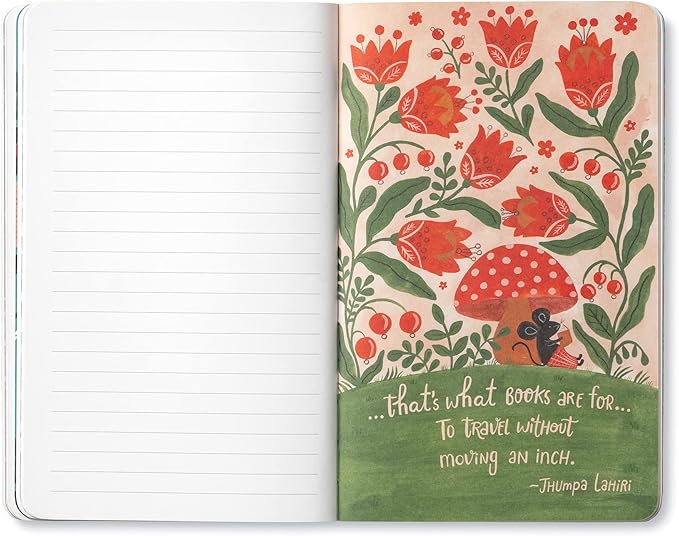 ...that's what BOOKS ARE FOR...
To TRAVEL WITHOUT
moving AN INCH.
~JHUMPA LAHIRI